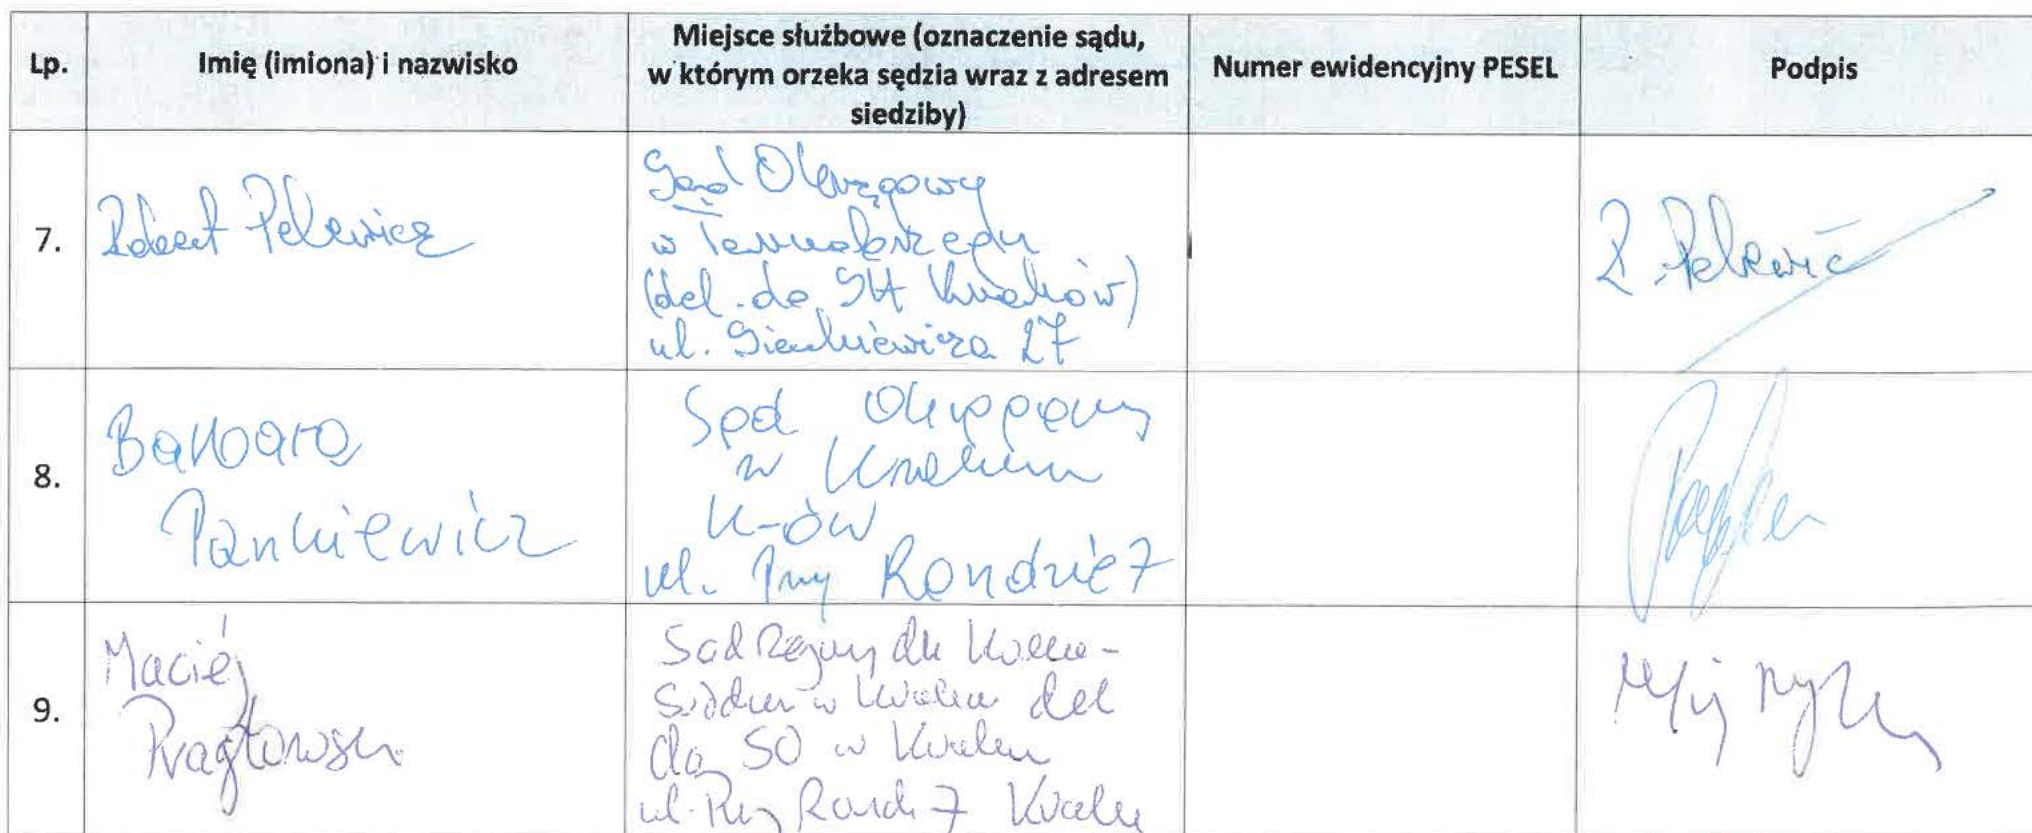 Lp.
Imię (imiona) i nazwisko
Miejsce służbowe (oznaczenie sądu,
w którym orzeka sędzia wraz z adresem
siedziby)
Numer ewidencyjny PESEL
Podpis
7.
Robert Pelewicz
Sąd Okręgowy
w Tarnobrzegu
(del. do SA Kraków)
ul. Sienkiewicza 27
R. Pelewicz
8.
Barbara
Pankiewicz
Sąd Okręgowy
w Krakowie
K-ów
ul. Przy Rondzie 7
9.
Maciej
Pragłowski
Sąd Rejonowy dla Krakowa-
Śródm w Krakowie del
do SO w Krakowie
ul. Przy Rondzie 7 Kraków